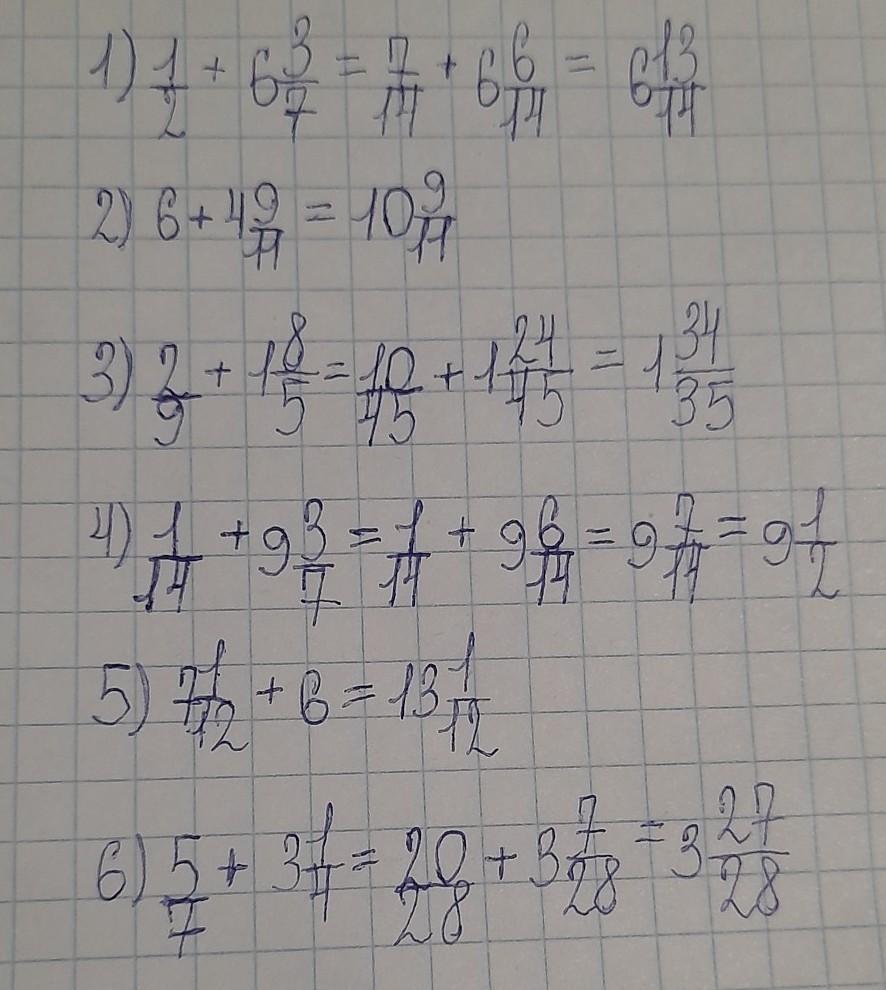 1) 1/2 + 6 3/7 = 7/14 + 6 6/14 = 6 13/14
2) 6 + 4 9/11 = 10 9/11
3) 2/9 + 1 8/5 = 10/45 + 1 24/45 = 1 34/35
4) 1/14 + 9 3/7 = 1/14 + 9 6/14 = 9 7/14 = 9 1/2
5) 7 1/12 + 6 = 13 1/12
6) 5/7 + 3 1/4 = 20/28 + 3 7/28 = 3 27/28